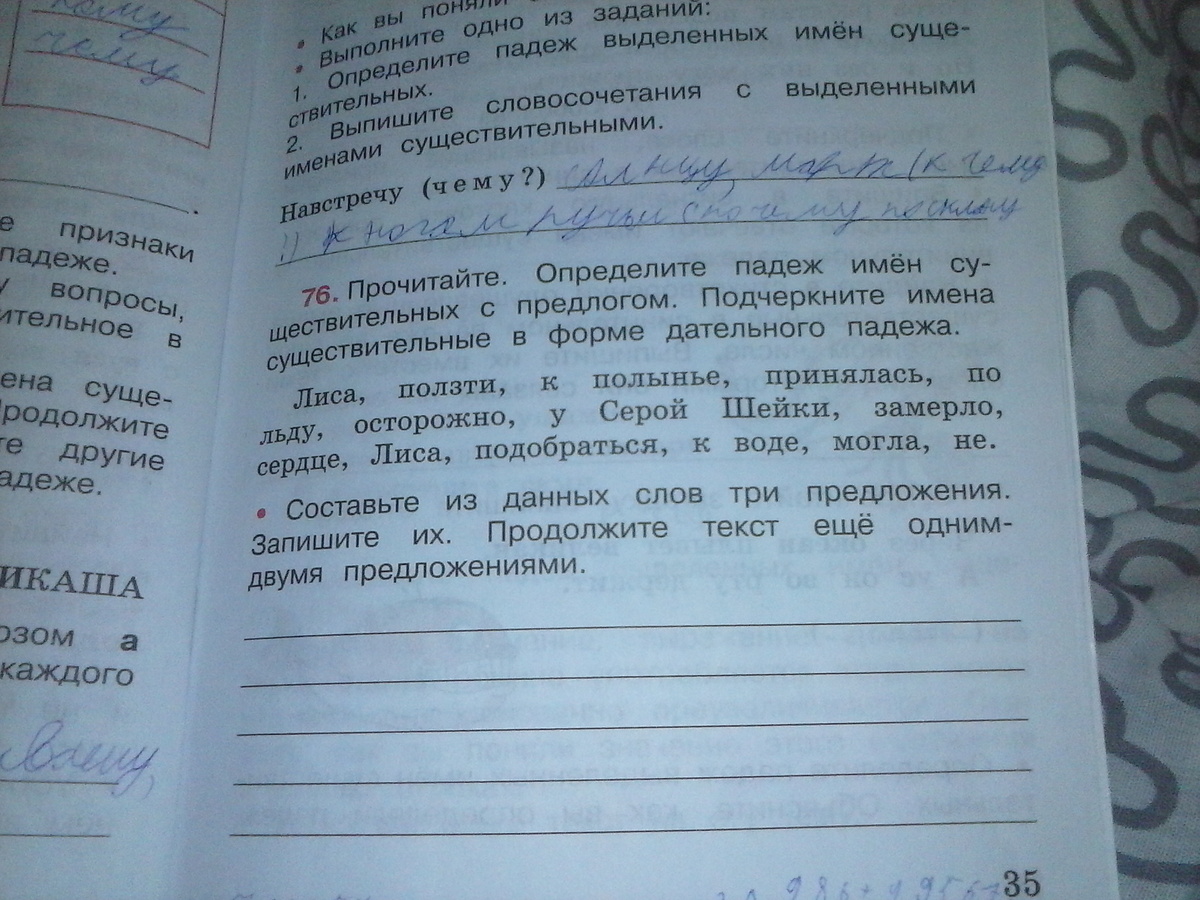 кому
чему
• Как вы поняли
• Выполните одно из заданий:
1. Определите падеж выделенных имён суще-
ствительных.
2. Выпишите словосочетания с выделенными
именами существительными.
Навстречу (чему?) солнцу, марта (к чему
к ногам ручьи
е признаки
падеже.
у вопросы,
ительное в
ена суще-
Продолжите
те другие
адеже.
ИКАША
озом а
каждого
76. Прочитайте. Определите падеж имён су-
ществительных с предлогом. Подчеркните имена
существительные в форме дательного падежа.
Лиса, ползти, к полынье, принялась, по
льду, осторожно, у Серой Шейки, замерло,
сердце, Лиса, подобраться, к воде, могла, не.
• Составьте из данных слов три предложения.
Запишите их. Продолжите текст ещё одним-
двумя предложениями.
35